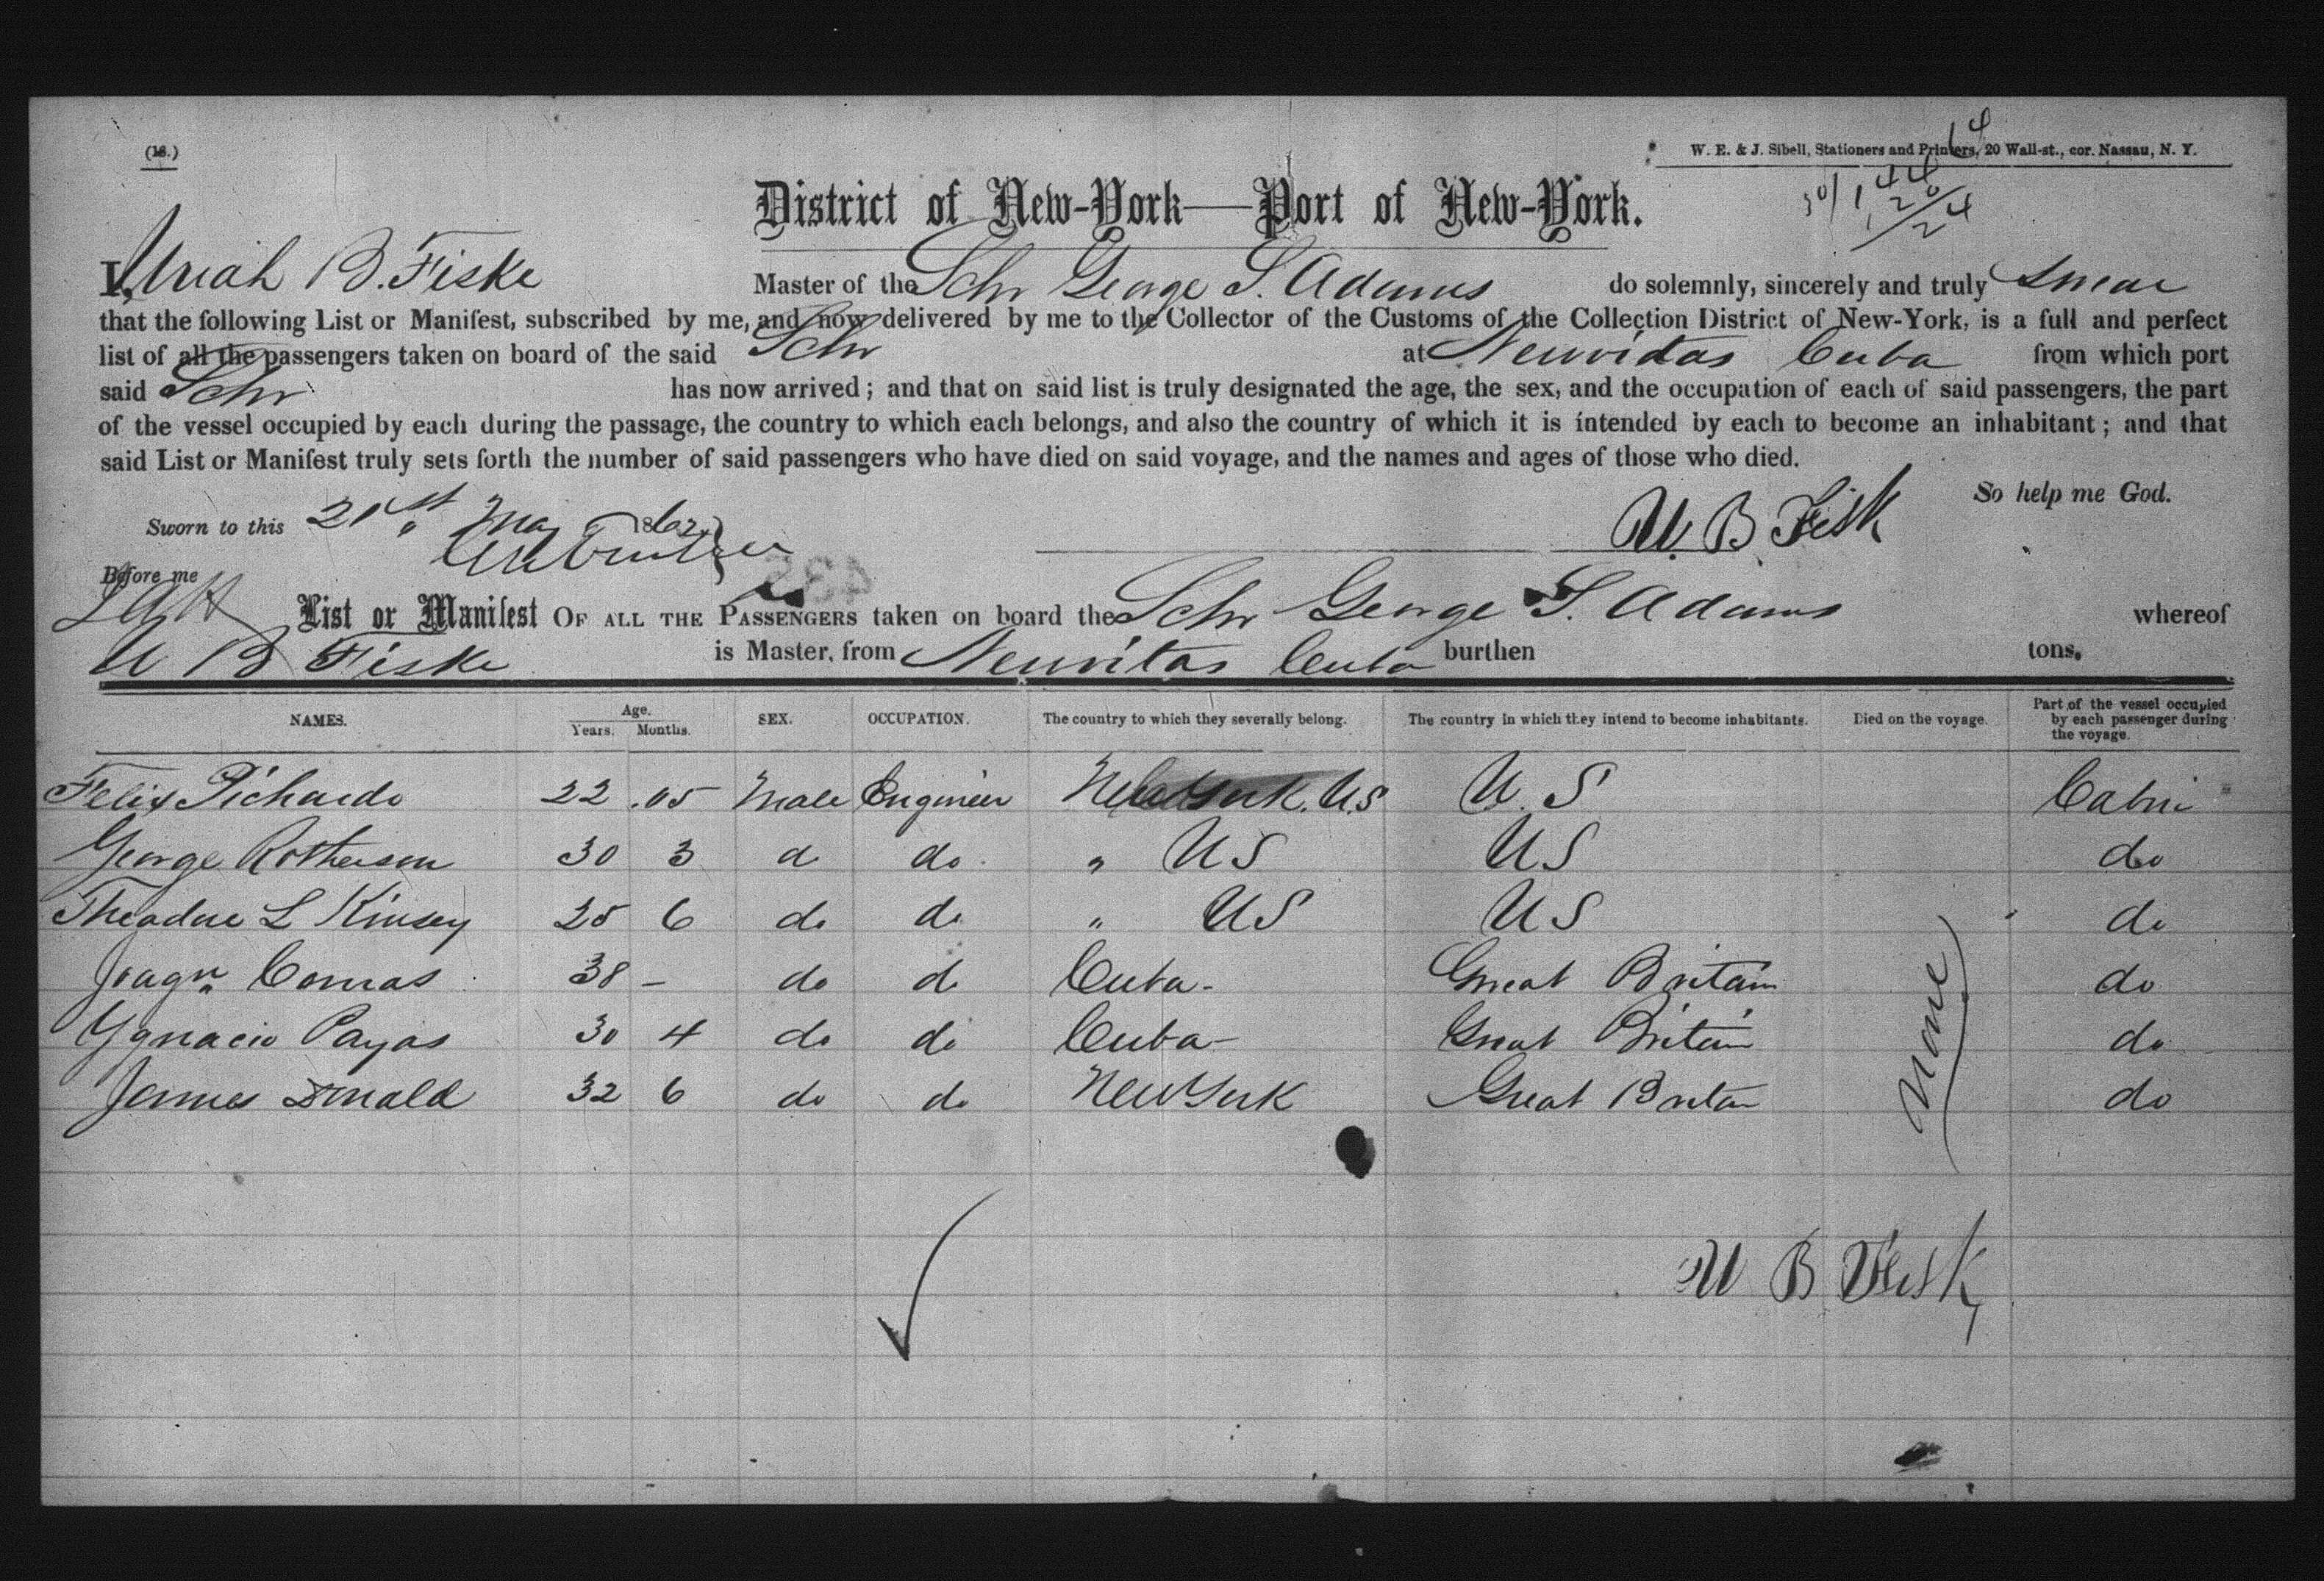 (18.)
W. E. & J. Sibell, Stationers and Printers, 20 Wall-st., cor. Nassau, N. Y.
District of New-York—Port of New-York.
I, Uriah B. Fiske Master of the Schr George S. Adams do solemnly, sincerely and truly swear
that the following List or Manifest, subscribed by me, and now delivered by me to the Collector of the Customs of the Collection District of New-York, is a full and perfect
list of all the passengers taken on board of the said Schr at Neuvidas Cuba from which port
said Schr has now arrived; and that on said list is truly designated the age, the sex, and the occupation of each of said passengers, the part
of the vessel occupied by each during the passage, the country to which each belongs, and also the country of which it is intended by each to become an inhabitant; and that
said List or Manifest truly sets forth the number of said passengers who have died on said voyage, and the names and ages of those who died.
So help me God.
Sworn to this 21st May 1862 U. B Fisk
Before me
List or Manifest OF ALL THE PASSENGERS taken on board the Schr George S. Adams whereof
U B Fiske is Master, from Neuvitas Cuba burthen tons.
NAMES. Age. Years. Months. SEX. OCCUPATION. The country to which they severally belong. The country in which they intend to become inhabitants. Died on the voyage. Part of the vessel occupied by each passenger during the voyage.
Felix Pichardo 22 .05 Male Engineer New York. U.S U. S Cabin
George Rotherson 30 3 d do " US US do
Theodore L Kinsey 25 6 do do " US US do
Joaqn Comas 38 - do do Cuba - Great Britain do
Ygnacio Payas 30 4 do do Cuba - Great Britain do
James Donald 32 6 do do New York Great Britan do
None
U B Fisk